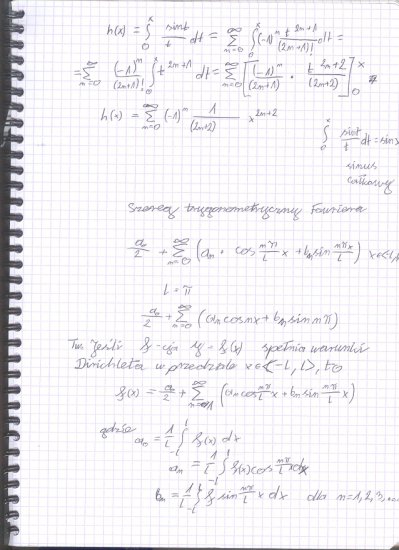 h(x) = ∫₀ˣ sint/t dt = ∑_{n=0}^{∞} ∫₀ˣ (-1)ⁿ t^{2n+1}/(2n+1)! dt =
= ∑_{n=0}^{∞} (-1)ⁿ/(2n+1)! ∫₀ˣ t^{2n+1} dt = ∑_{n=0}^{∞} [(-1)ⁿ/(2n+1)! · t^{2n+2}/(2n+2)]₀ˣ
h(x) = ∑_{n=0}^{∞} (-1)ⁿ 1/(2n+2) x^{2n+2}
∫₀ˣ sint/t dt = sinx
sinus
całkowy
Szereg trygonometryczny Fouriera
a₀/2 + ∑_{n=0}^{∞} (aₙ · cos nπ/l x + bₙ sin nπx/l) x∈<-l,
l = π
a₀/2 + ∑_{n=0}^{∞} (aₙ cos nx + bₙ sin nπ)
Tw. Jeśli f-cja y = f(x) spełnia warunki
Dirichleta w przedziale x∈<-l, l>, to
f(x) = a₀/2 + ∑_{n=1}^{∞} (aₙ cos nπ/l x + bₙ sin nπ/l x)
gdzie
aₙ = 1/l ∫_{-l}^{l} f(x) dx
aₙ = 1/l ∫_{-l}^{l} f(x) cos nπ/l x dx
bₙ = 1/l ∫_{-l}^{l} f sin nπ/l x dx dla n=1,2,3,...